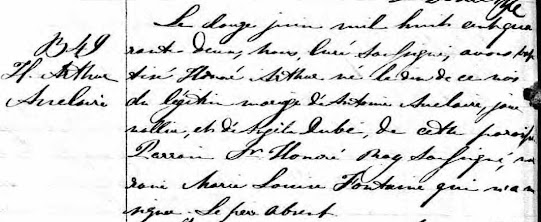 B49
H. Arthur
Auclaire
Le douze juin mil huit cent qua
rante deux, nous, curé soussigné, avons bap
tisé Honoré Arthur né le dix de ce mois
du légitim mariage d'Antoine Auclaire, jour
nallier, et d' Dubé, de cette paroisse
Parrain Honoré Roy soussigné, ma
raine Marie Louise Fontaine qui n'a
signé. Le père absent